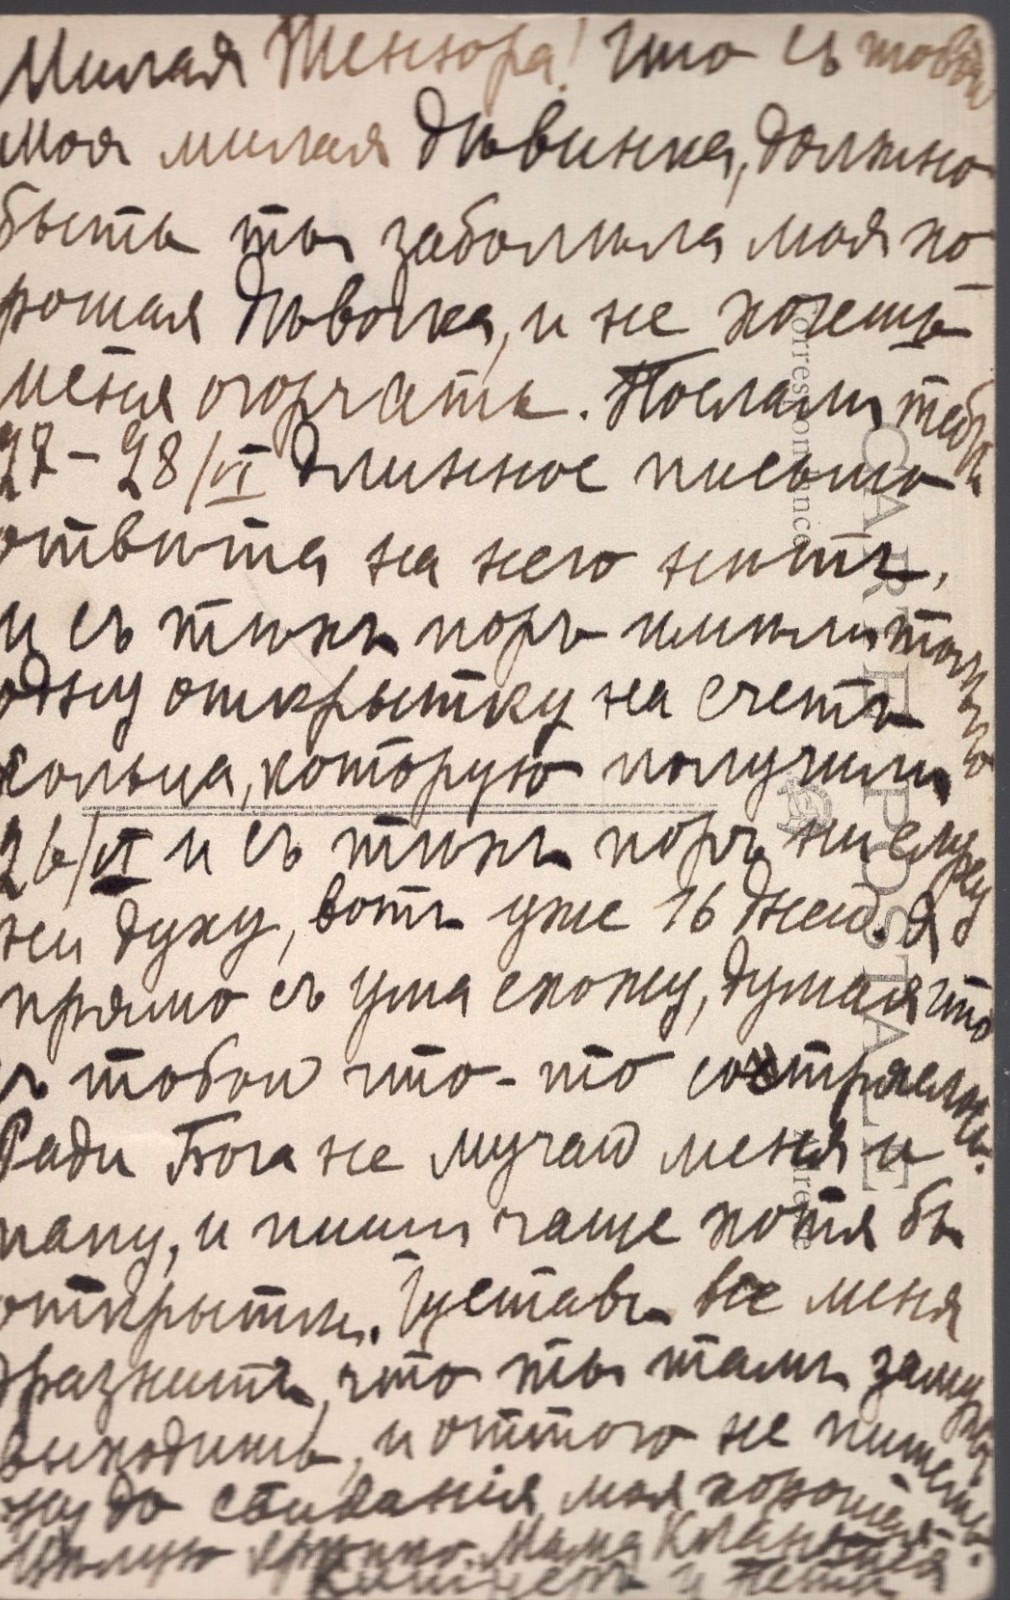 Милая Женюра! Что съ тобой
моя милая дѣвинка, должно
быть ты заболѣла моя хо-
рошая дѣвочка, и не хочешь
меня огорчать. Послали тебѣ
27-28/VI длинное письмо
отвѣта на него нѣтъ,
и съ тѣхъ поръ имѣли только
одну открытку на счетъ
кольца, которую получили
26/VI и съ тѣхъ поръ ни слуху
ни духу, вотъ уже 16 дней. Я
прямо съ ума схожу, думая что
съ тобой что-то стряслось.
Ради Бога не мучай меня и
папу, и пиши чаще хотя бы
открытки. Густавъ все меня
дразнитъ, что ты тамъ замужъ
выходишь, и оттого не пишешь.
Ну до свиданія моя хорошая.
Цѣлую крѣпко. Мама. Кланяется
и Петя
CARTE POSTALE
Correspondance
Adresse